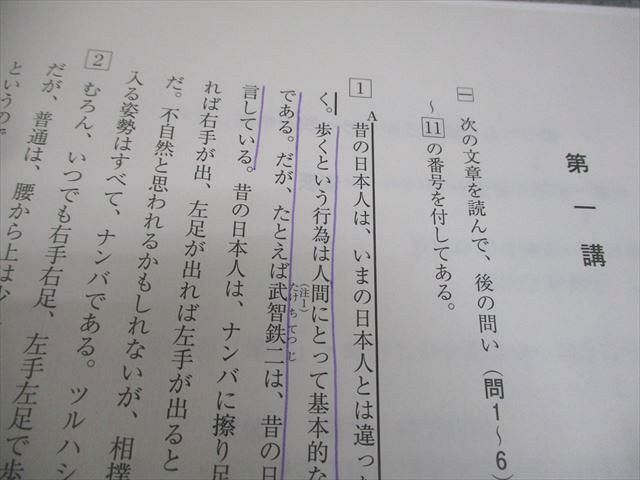 第一講
一 次の文章を読んで、後の問い(問1〜6)
〜11の番号を付してある。
1
A
昔の日本人は、いまの日本人とは違っ
く。歩くという行為は人間にとって基本的な
(注1)
たけちてつじ
である。だが、たとえば武智鉄二は、昔の日
言している。昔の日本人は、ナンバに擦り足
れば右手が出、左足が出れば左手が出ると
だ。不自然と思われるかもしれないが、相撲
入る姿勢はすべて、ナンバである。ツルハシ
2
むろん、いつでも右手右足、左手左足で歩
だが、普通は、腰から上は少
というの